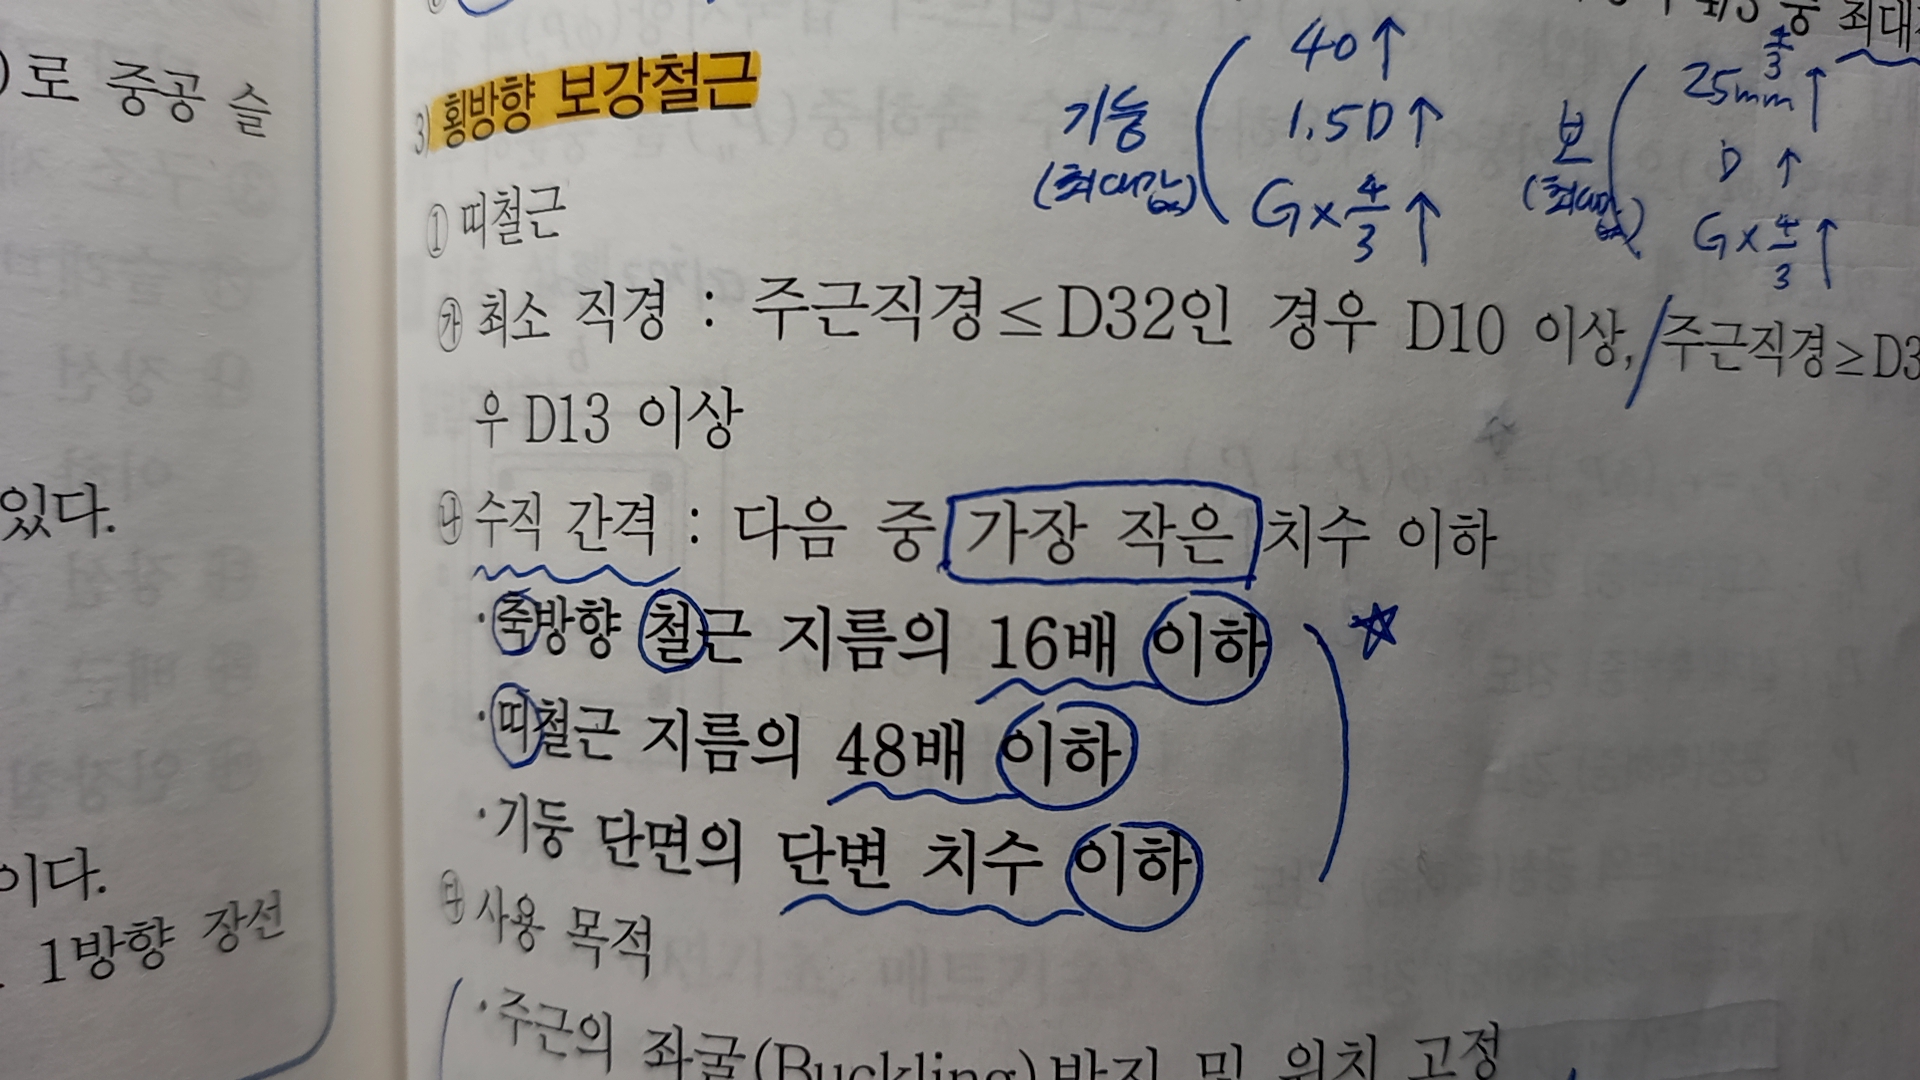 )로 중공 슬
있다.
이다.
1방향 장선
최대
3) 횡방향 보강철근
기둥
(최대값)
40↑
1.5D↑
G×4/3↑
보
(최대값)
4/3
25mm↑
D↑
G×4/3↑
① 띠철근
㉮ 최소 직경 : 주근직경≤D32인 경우 D10 이상, 주근직경≥D3
우 D13 이상
㉯ 수직 간격 : 다음 중 가장 작은 치수 이하
·축방향 철근 지름의 16배 이하
·띠철근 지름의 48배 이하
·기둥 단면의 단변 치수 이하
☆
㉰ 사용 목적
·주근의 좌굴(Buckling)방지 및 위치 고정